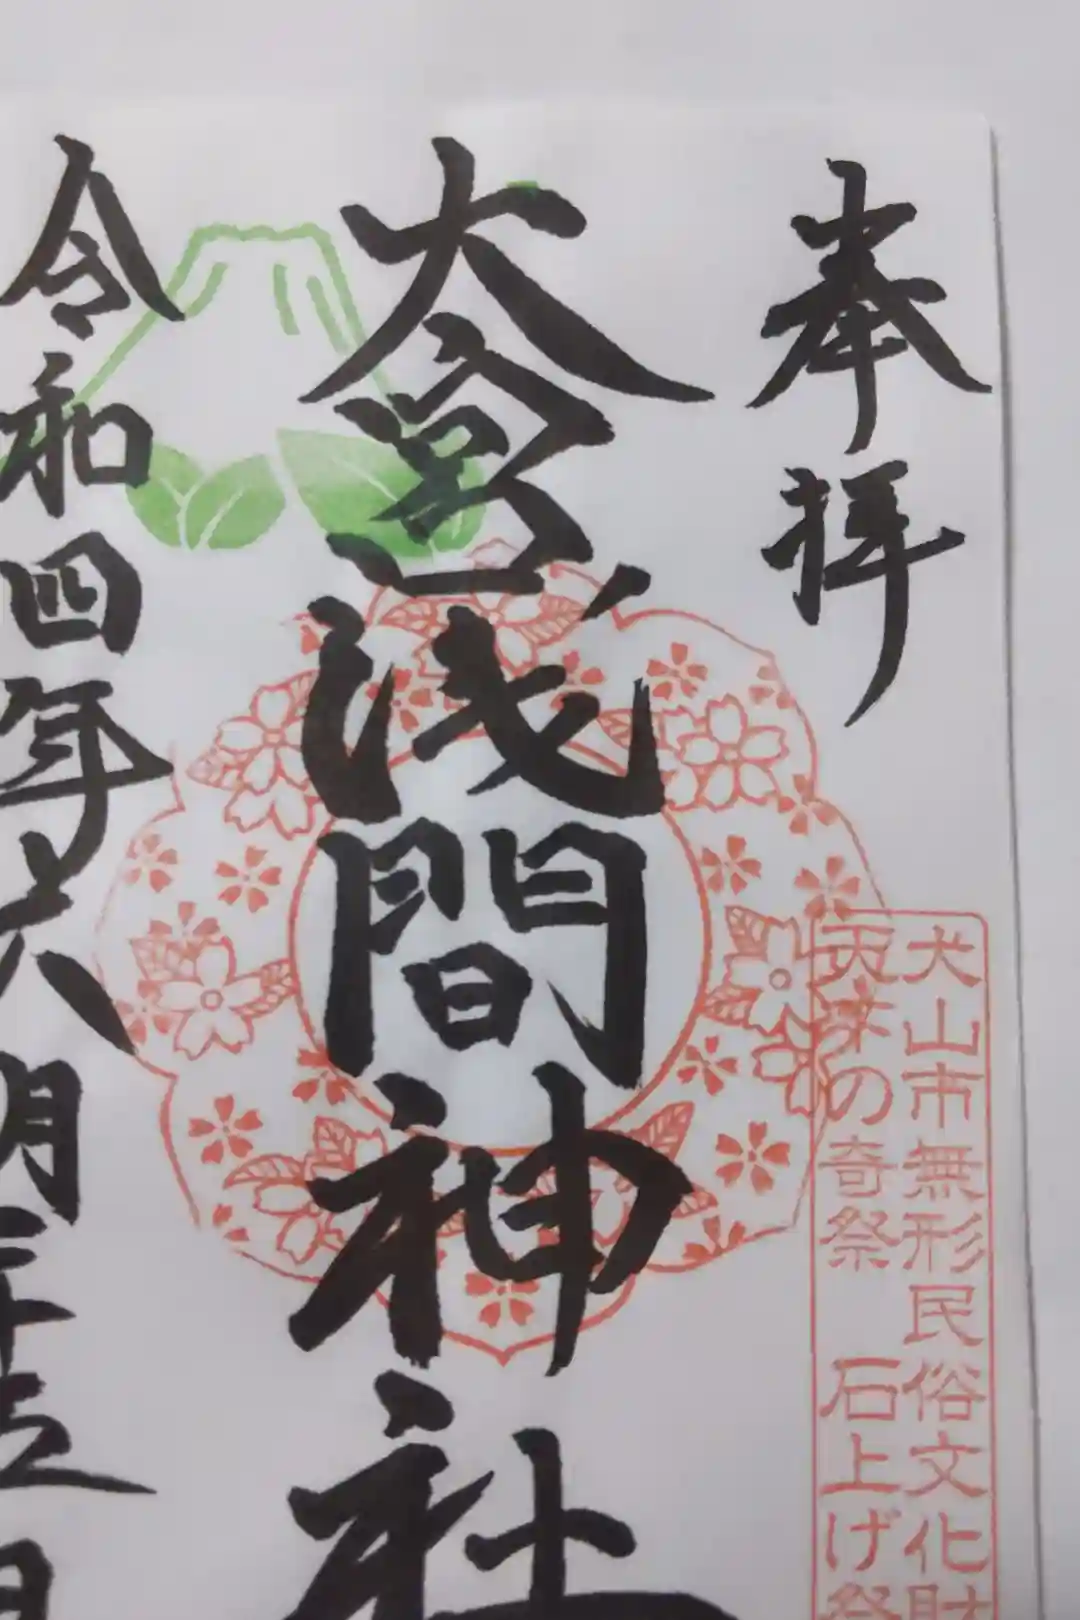 奉拝
犬山市無形民俗文化財
天下の奇祭 石上げ祭
大宮浅間神社
令和四年六月二十五日